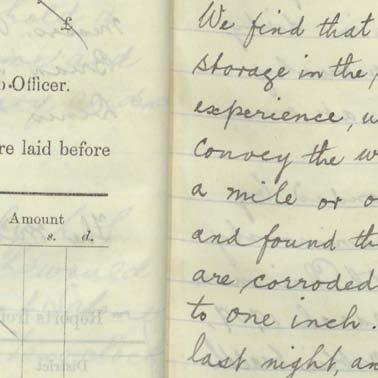 £
Officer.
re laid before
Amount
s. d.
We find that
storage in the
experience, w
convey the w
a mile or o
and found th
are corroded
to one inch.
last night, an
Reports from
District